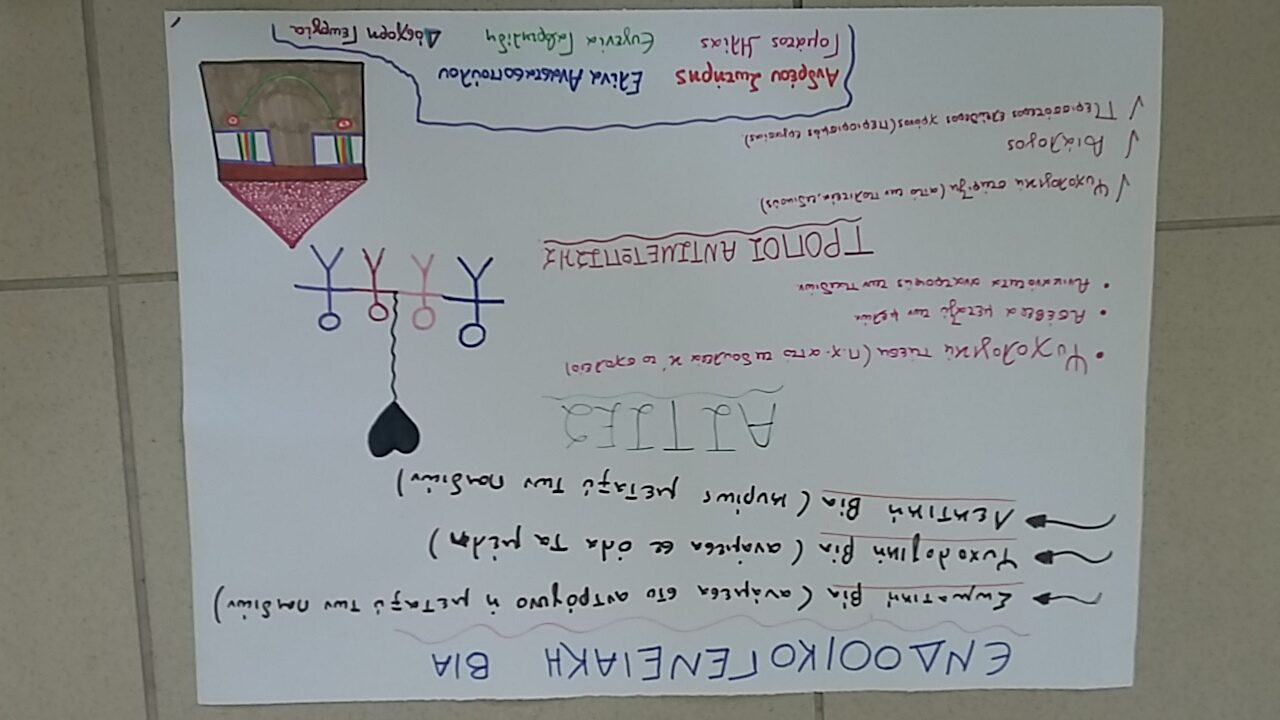 ΕΝΔΟΟΙΚΟΓΕΝΕΙΑΚΗ ΒΙΑ
Σωματική βία (ανάμεσα στο αντρόγυνο ή μεταξύ των παιδιών)
Ψυχολογική βία (ανάμεσα σε όλα τα μέλη)
Λεκτική βία (κυρίως μεταξύ των παιδιών)
ΑΙΤΙΕΣ
• Ψυχολογική πίεση (π.χ. από τη δουλεία κ' το σχολείο)
• Ασέβεια μεταξύ των μελών
• Ανικανότητα ανατροφής των παιδιών
ΤΡΟΠΟΙ ΑΝΤΙΜΕΤΩΠΙΣΗΣ
√ Ψυχολογική στήριξη (από την πολιτεία, ειδικούς)
√ Διάλογος
√ Περισσότερος ελεύθερος χρόνος (περιορισμός εργασίας)
Ανδρέου Σωτήρης Ελίνα Αναστασοπούλου
Γομάτος Ηλίας Ευγενία Γαβριηλίδη Δόσχορη Γεωργία